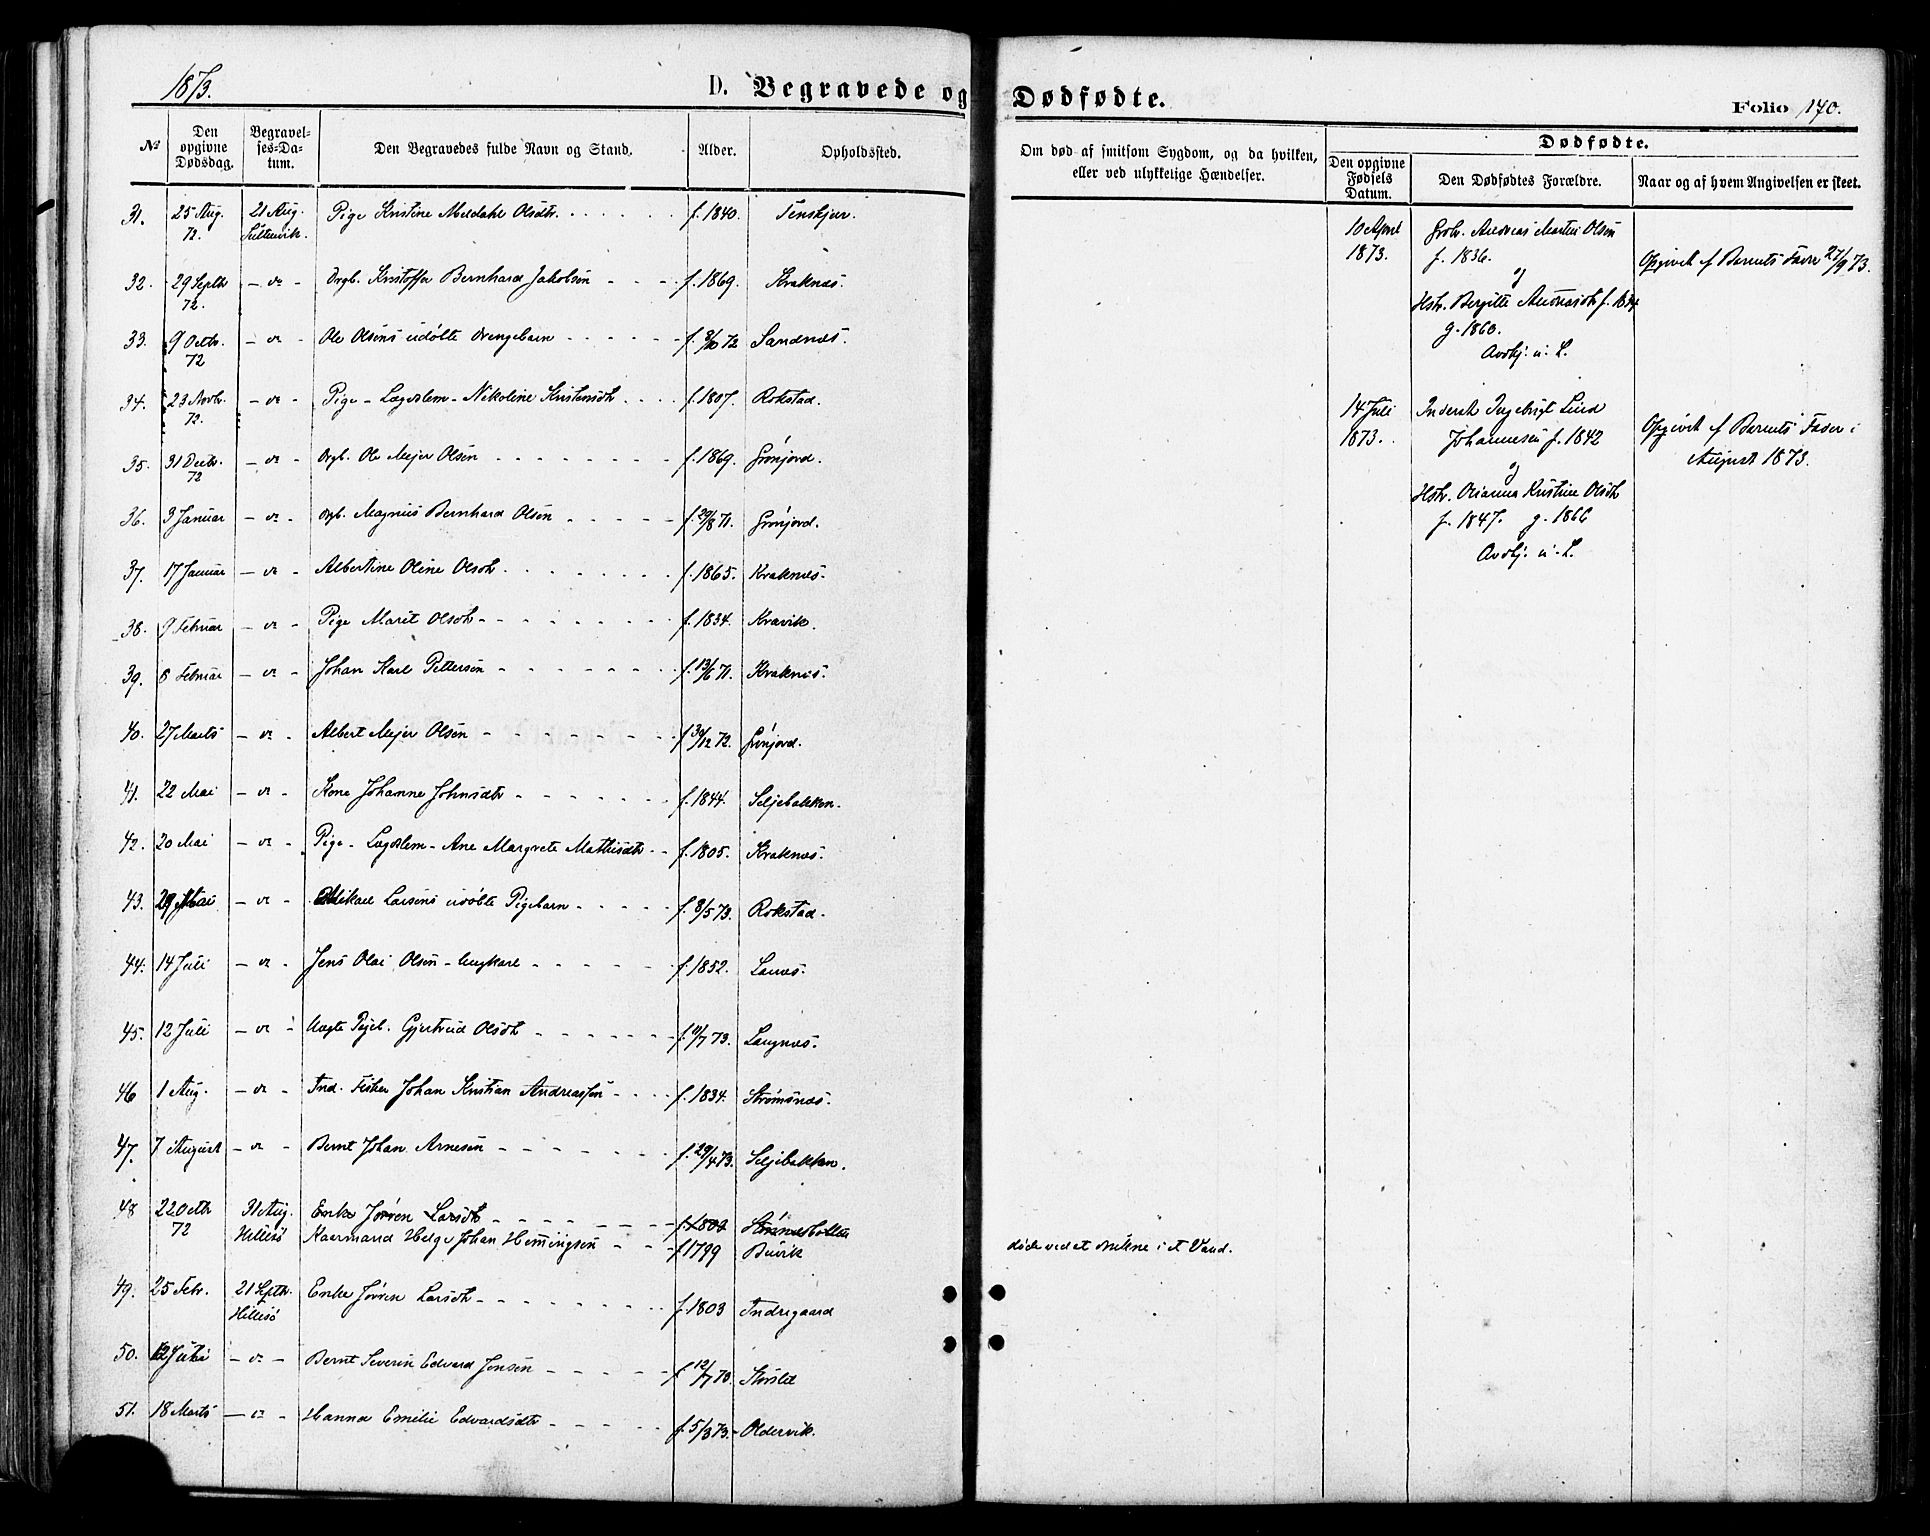 1873.
D. Begravede og Dødfødte.
Folio 170.
No
Den opgivne Dødsdag.
Begravelses-Datum.
Den Begravedes fulde Navn og Stand.
Alder.
Opholdssted.
Om død af smitsom Sygdom, og da hvilken, eller ved ulykkelige Hændelser.
Dødfødte.
Den opgivne Fødsels Datum.
Den Dødfødtes Forældre.
Naar og af hvem Angivelsen er skeet.
31. 25 Aug. 72. 21 Aug. Pige Kristine Meldahl Olsdtr. f. 1840. Tenskjær.
32. 29 Septbr 72. - do - Drgb. Kristoffer Bernhard Jakobsen f. 1869. Kraknæs.
33. 9 Octbr. 72 - do - Ole Olsens udøbte Drengebarn f. 9/10 72 Sandnæs.
34. 23 Novbr. 72. - do - Pige - Lægdslem - Nikoline Kristensdtr f. 1807. Rokstad.
35. 31 Decbr. 72 - do - Drgb. Ole Mejer Olsen f. 1869. Grønjord.
36. 3 Januar - do - Drgb. Magnus Bernhard Olsen f. 29/8 71. Grønjord.
37. 17 Januar - do - Albertine Oline Olsdtr. f. 1865. Kraknæs.
38. 9 Februar - do - Pige Marit Olsdtr f. 1834. Kravik.
39. 8 Februar - do - Johan Karl Pettersen f. 13/6 71. Kraknæs.
40. 27 Marts - do - Albert Mejer Olsen f 30/12 72. Grønjord.
41. 22 Mai - do - Kone Johanne Johnsdtr f. 1844. Seljebakken.
42. 20 Mai - do - Pige - Lægdslem - Ane Margrete Mathisdtr f. 1805. Kraknæs.
43. 29 Mai - do - Mikael Larsens udøbte Pigebarn f. 8/5 73. Rokstad.
44. 14 Juli - do - Jens Olai Olsen - Ungkarl f. 1852. Lanes.
45. 12 Juli - do - Uægte Pigeb. Gjertrud Olsdtr f. 11/7 73. Langnæs.
46 1 Aug. - do - Ind. Fisker Johan Kristian Andreassen f. 1834. Strømsnæs.
47. 7 August - do - Bernt Johan Arnesen f. 29/4 73. Seljebakken.
48 22 Octbr 72 31 Aug. Hillesø Enke Jørren Larsdtr f. 1803
Kaarmand Helge Johan Hemmingsen f 1799 Buvik døde ved at drukne i et Vand.
49. 25 Febr. 21 Septbr. Hillesø Enke Jørren Larsdtr f. 1803 Indregaard
50. 12 Juli - do - Bernt Severin Edvard Jensen f 12/7 73. Storslet
51. 18 Marts - do - Hanna Emilie Edvardsdtr f. 5/3 73. Oldervik.
10 April 1873.
Grbr. Andreas Martin Olsen
f. 1836.
og
Hstr. Bergitte Andreasdtr f. 1834
g. 1860.
Opgivet af Barnets Fader 27/9 73.
14 Juli 1873.
Inderst Ingebrigt Lind
Johannesen f. 1842
og
Hstr. Oleanna Kristine Olsdtr
f. 1847. g. 1866
Opgivet af Barnets Fader i
August 1873.